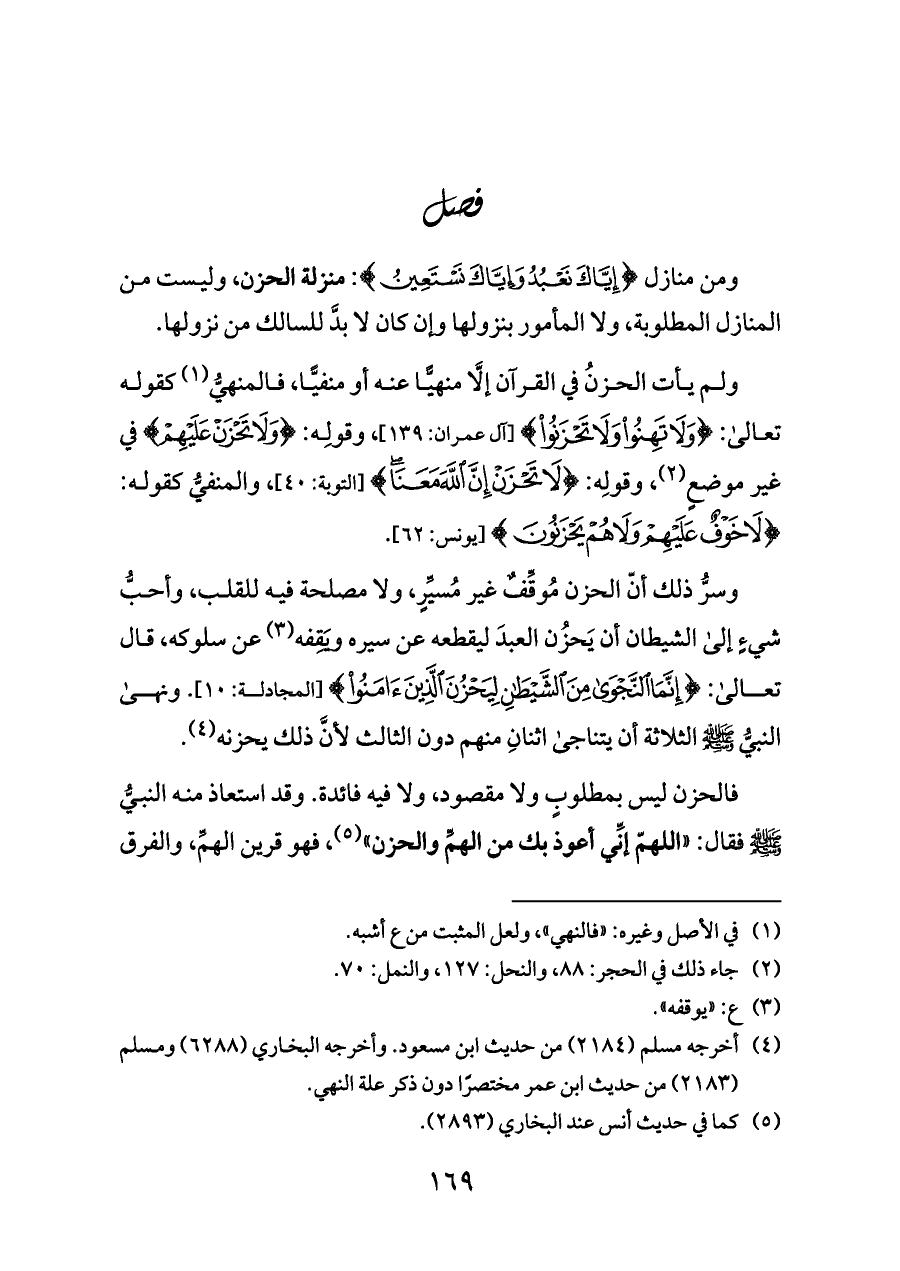 فصل
ومن منازل ﴿إِيَّاكَ نَعْبُدُ وَإِيَّاكَ نَسْتَعِينُ﴾: منزلة الحزن، وليست من
المنازل المطلوبة، ولا المأمور بنزولها وإن كان لا بدَّ للسالك من نزولها.
ولم يأت الحزنُ في القرآن إلَّا منهيًّا عنه أو منفيًّا، فالمنهيُّ(١) كقوله
تعالىٰ: ﴿وَلَا تَهِنُواْ وَلَا تَحْزَنُواْ﴾ [آل عمران: ١٣٩]، وقولِه: ﴿وَلَا تَحْزَنْ عَلَيْهِمْ﴾ في
غير موضعٍ(٢)، وقولِه: ﴿لَا تَحْزَنْ إِنَّ ٱللَّهَ مَعَنَاۖ﴾ [التوبة: ٤٠]، والمنفيُّ كقوله:
﴿لَا خَوْفٌ عَلَيْهِمْ وَلَا هُمْ يَحْزَنُونَ﴾ [يونس: ٦٢].
وسرُّ ذلك أنّ الحزن مُوقِّفٌ غير مُسيِّرٍ، ولا مصلحة فيه للقلب، وأحبُّ
شيءٍ إلىٰ الشيطان أن يَحزُن العبدَ ليقطعه عن سيره ويَقِفه(٣) عن سلوكه، قال
تعالىٰ: ﴿إِنَّمَا ٱلنَّجْوَىٰ مِنَ ٱلشَّيْطَٰنِ لِيَحْزُنَ ٱلَّذِينَ ءَامَنُواْ﴾ [المجادلة: ١٠]. ونهىٰ
النبيُّ ﷺ الثلاثة أن يتناجىٰ اثنانِ منهم دون الثالث لأنَّ ذلك يحزنه(٤).
فالحزن ليس بمطلوبٍ ولا مقصود، ولا فيه فائدة. وقد استعاذ منه النبيُّ
ﷺ فقال: «اللهمّ إنِّي أعوذ بك من الهمِّ والحزن»(٥)، فهو قرين الهمِّ، والفرق
(١) في الأصل وغيره: «فالنهي»، ولعل المثبت من ع أشبه.
(٢) جاء ذلك في الحجر: ٨٨، والنحل: ١٢٧، والنمل: ٧٠.
(٣) ع: «يوقفه».
(٤) أخرجه مسلم (٢١٨٤) من حديث ابن مسعود. وأخرجه البخاري (٦٢٨٨) ومسلم
(٢١٨٣) من حديث ابن عمر مختصرًا دون ذكر علة النهي.
(٥) كما في حديث أنس عند البخاري (٢٨٩٣).
١٦٩